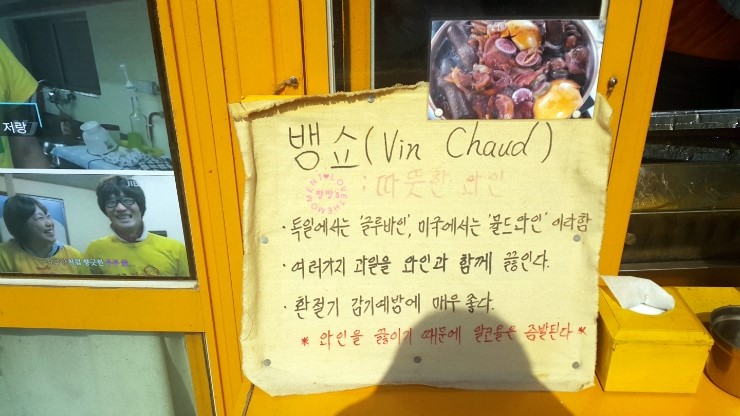 저랑
뱅쇼(Vin Chaud)
: 따뜻한 와인
· 독일에서는 '글루바인', 미국에서는 '뮬드와인' 이라함
· 여러가지 과일을 와인과 함께 끓인다.
· 환절기 감기예방에 매우 좋다.
* 와인을 끓이기 때문에 알코올은 증발된다 *